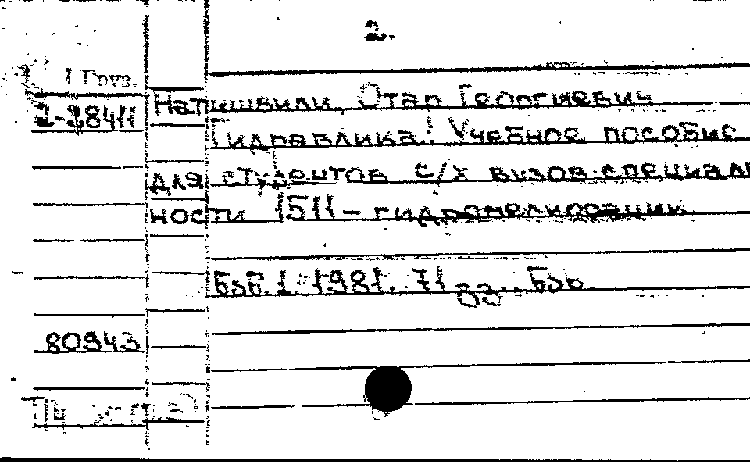 2.
1 Груз.
2-28411
Натишвили, Отар Георгиевич
Гидравлика: Учебное пособие
для студентов с/х вузов специаль
ности 1511 – гидромелиорации
1981. 71
80943